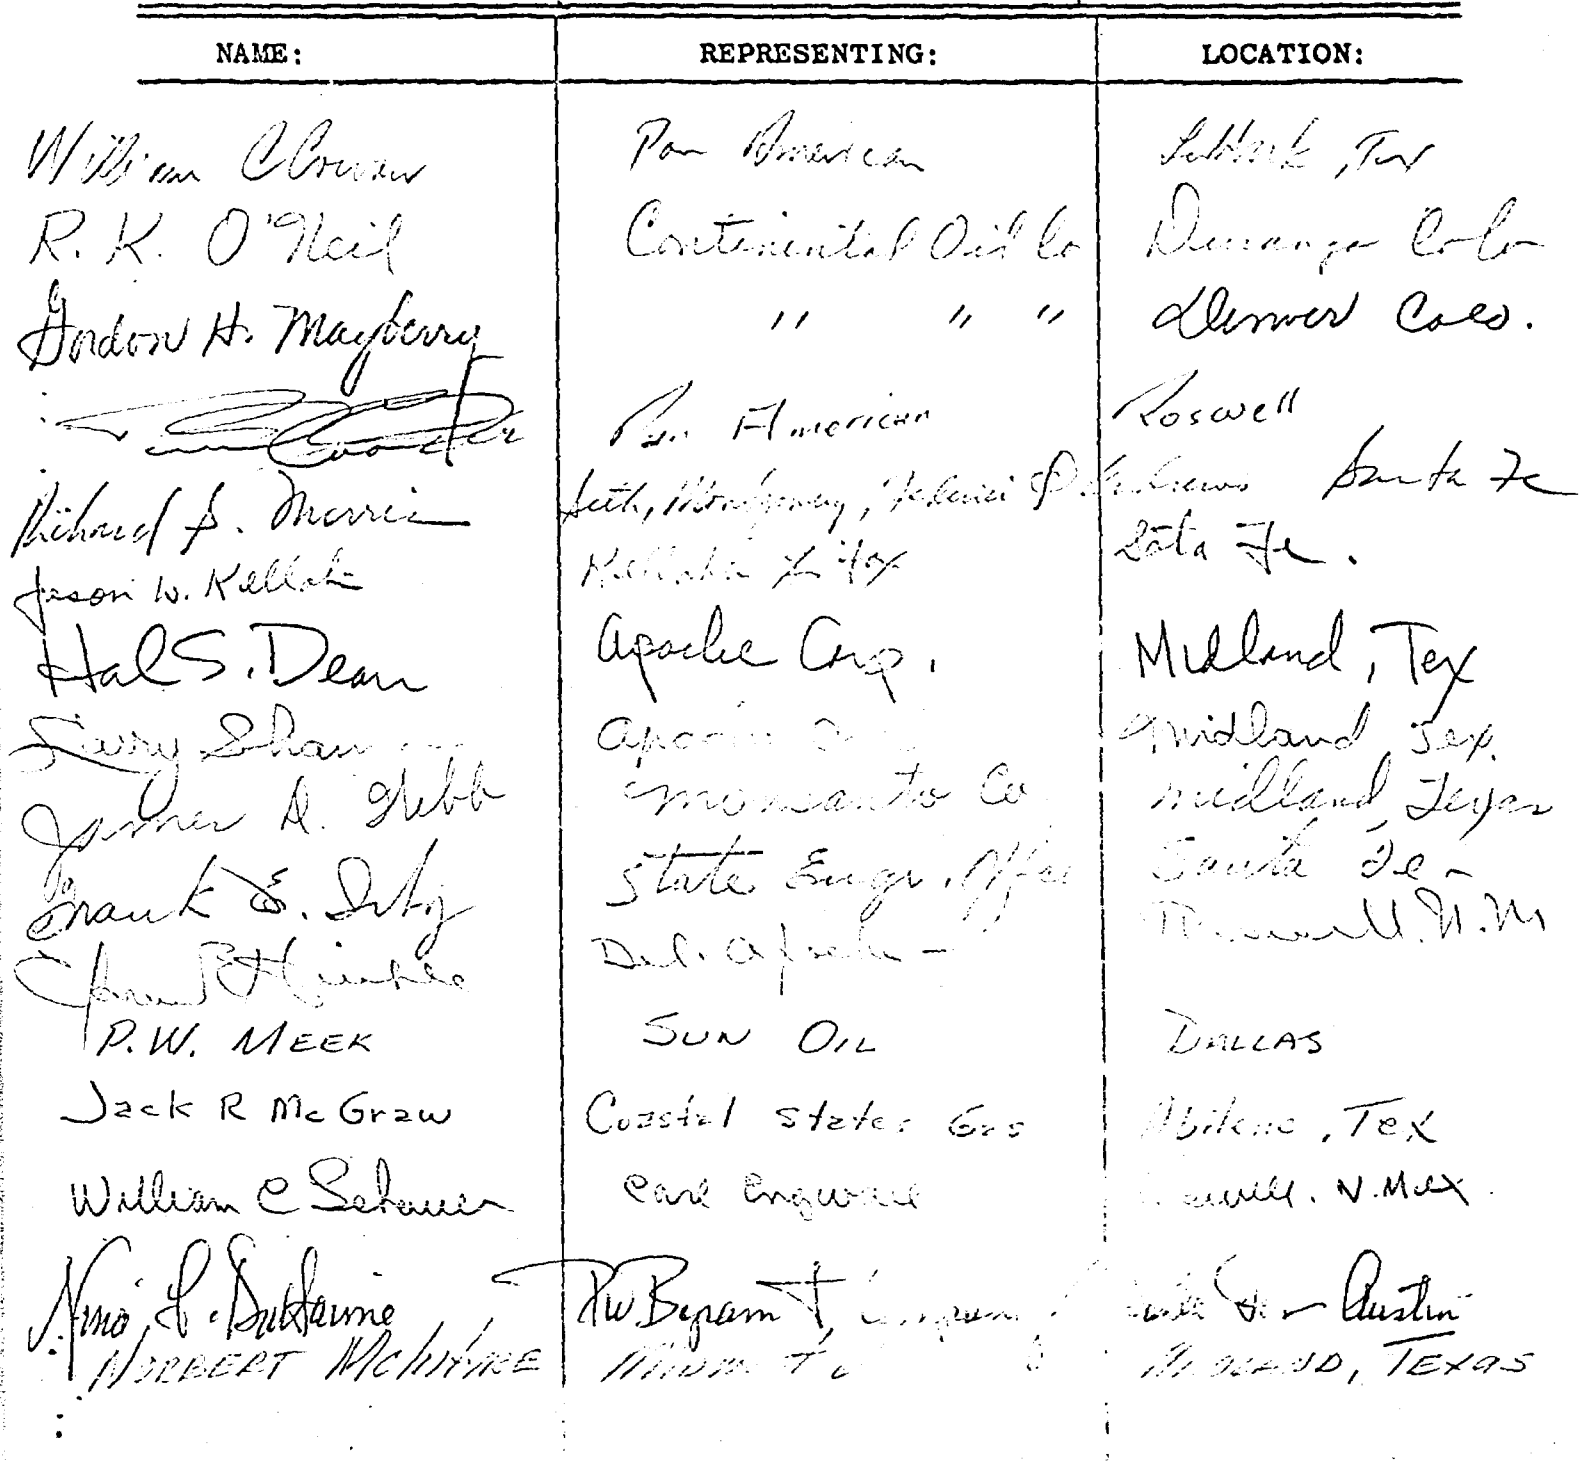 NAME: REPRESENTING: LOCATION:
William Pan American Tex
R. K. O'Neil Continental Oil Co Durango Colo
Gordon H. Mayberry " " " Denver Colo.
Pan American Roswell
Richard S. Morris Seth, Montgomery, Federici & Andrews Santa Fe
Jason W. Kellahin Kellahin & Fox Fe.
Hal S. Dean Apache Corp. Midland, Tex
Larry Apache Midland, Tex.
James Monsanto Co Midland, Texas
Frank E. Irby State Engr. Office Santa Fe
Hinkle N.M
P.W. MEEK SUN OIL DALLAS
Jack R McGraw Coastal States Gas Abilene, Tex
William C Schauer Carl Engwall N. Mex.
Byram & Austin
NORBERT McINTYRE MIDLAND, TEXAS